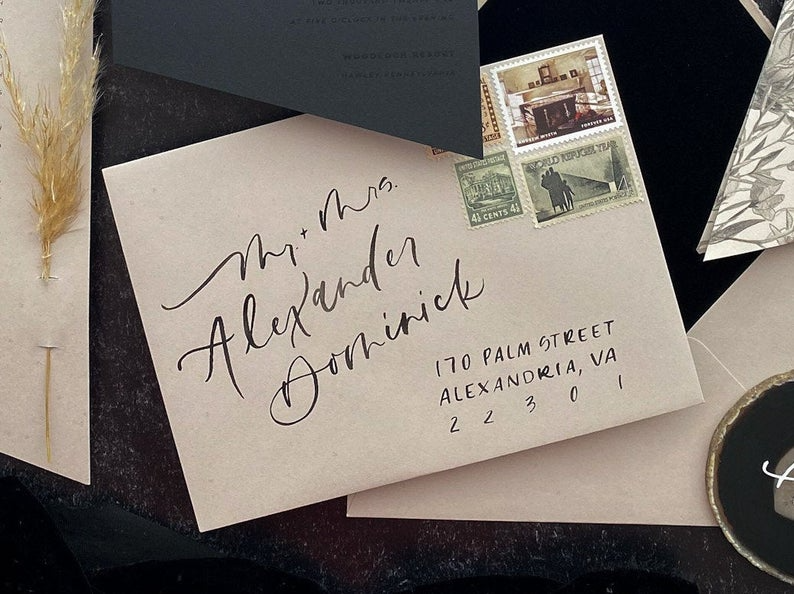 TWO THOUSAND TWENTY
AT FIVE O'CLOCK IN THE EVENING
WOODLOCH RESORT
HAWLEY, PENNSYLVANIA
ANDREW WYETH FOREVER USA
UNITED STATES POSTAGE
4½ CENTS 4½
WORLD REFUGEE YEAR
4¢
UNITED STATES POSTAGE
Mr. + Mrs.
Alexander
Dominick
170 PALM STREET
ALEXANDRIA, VA
22301